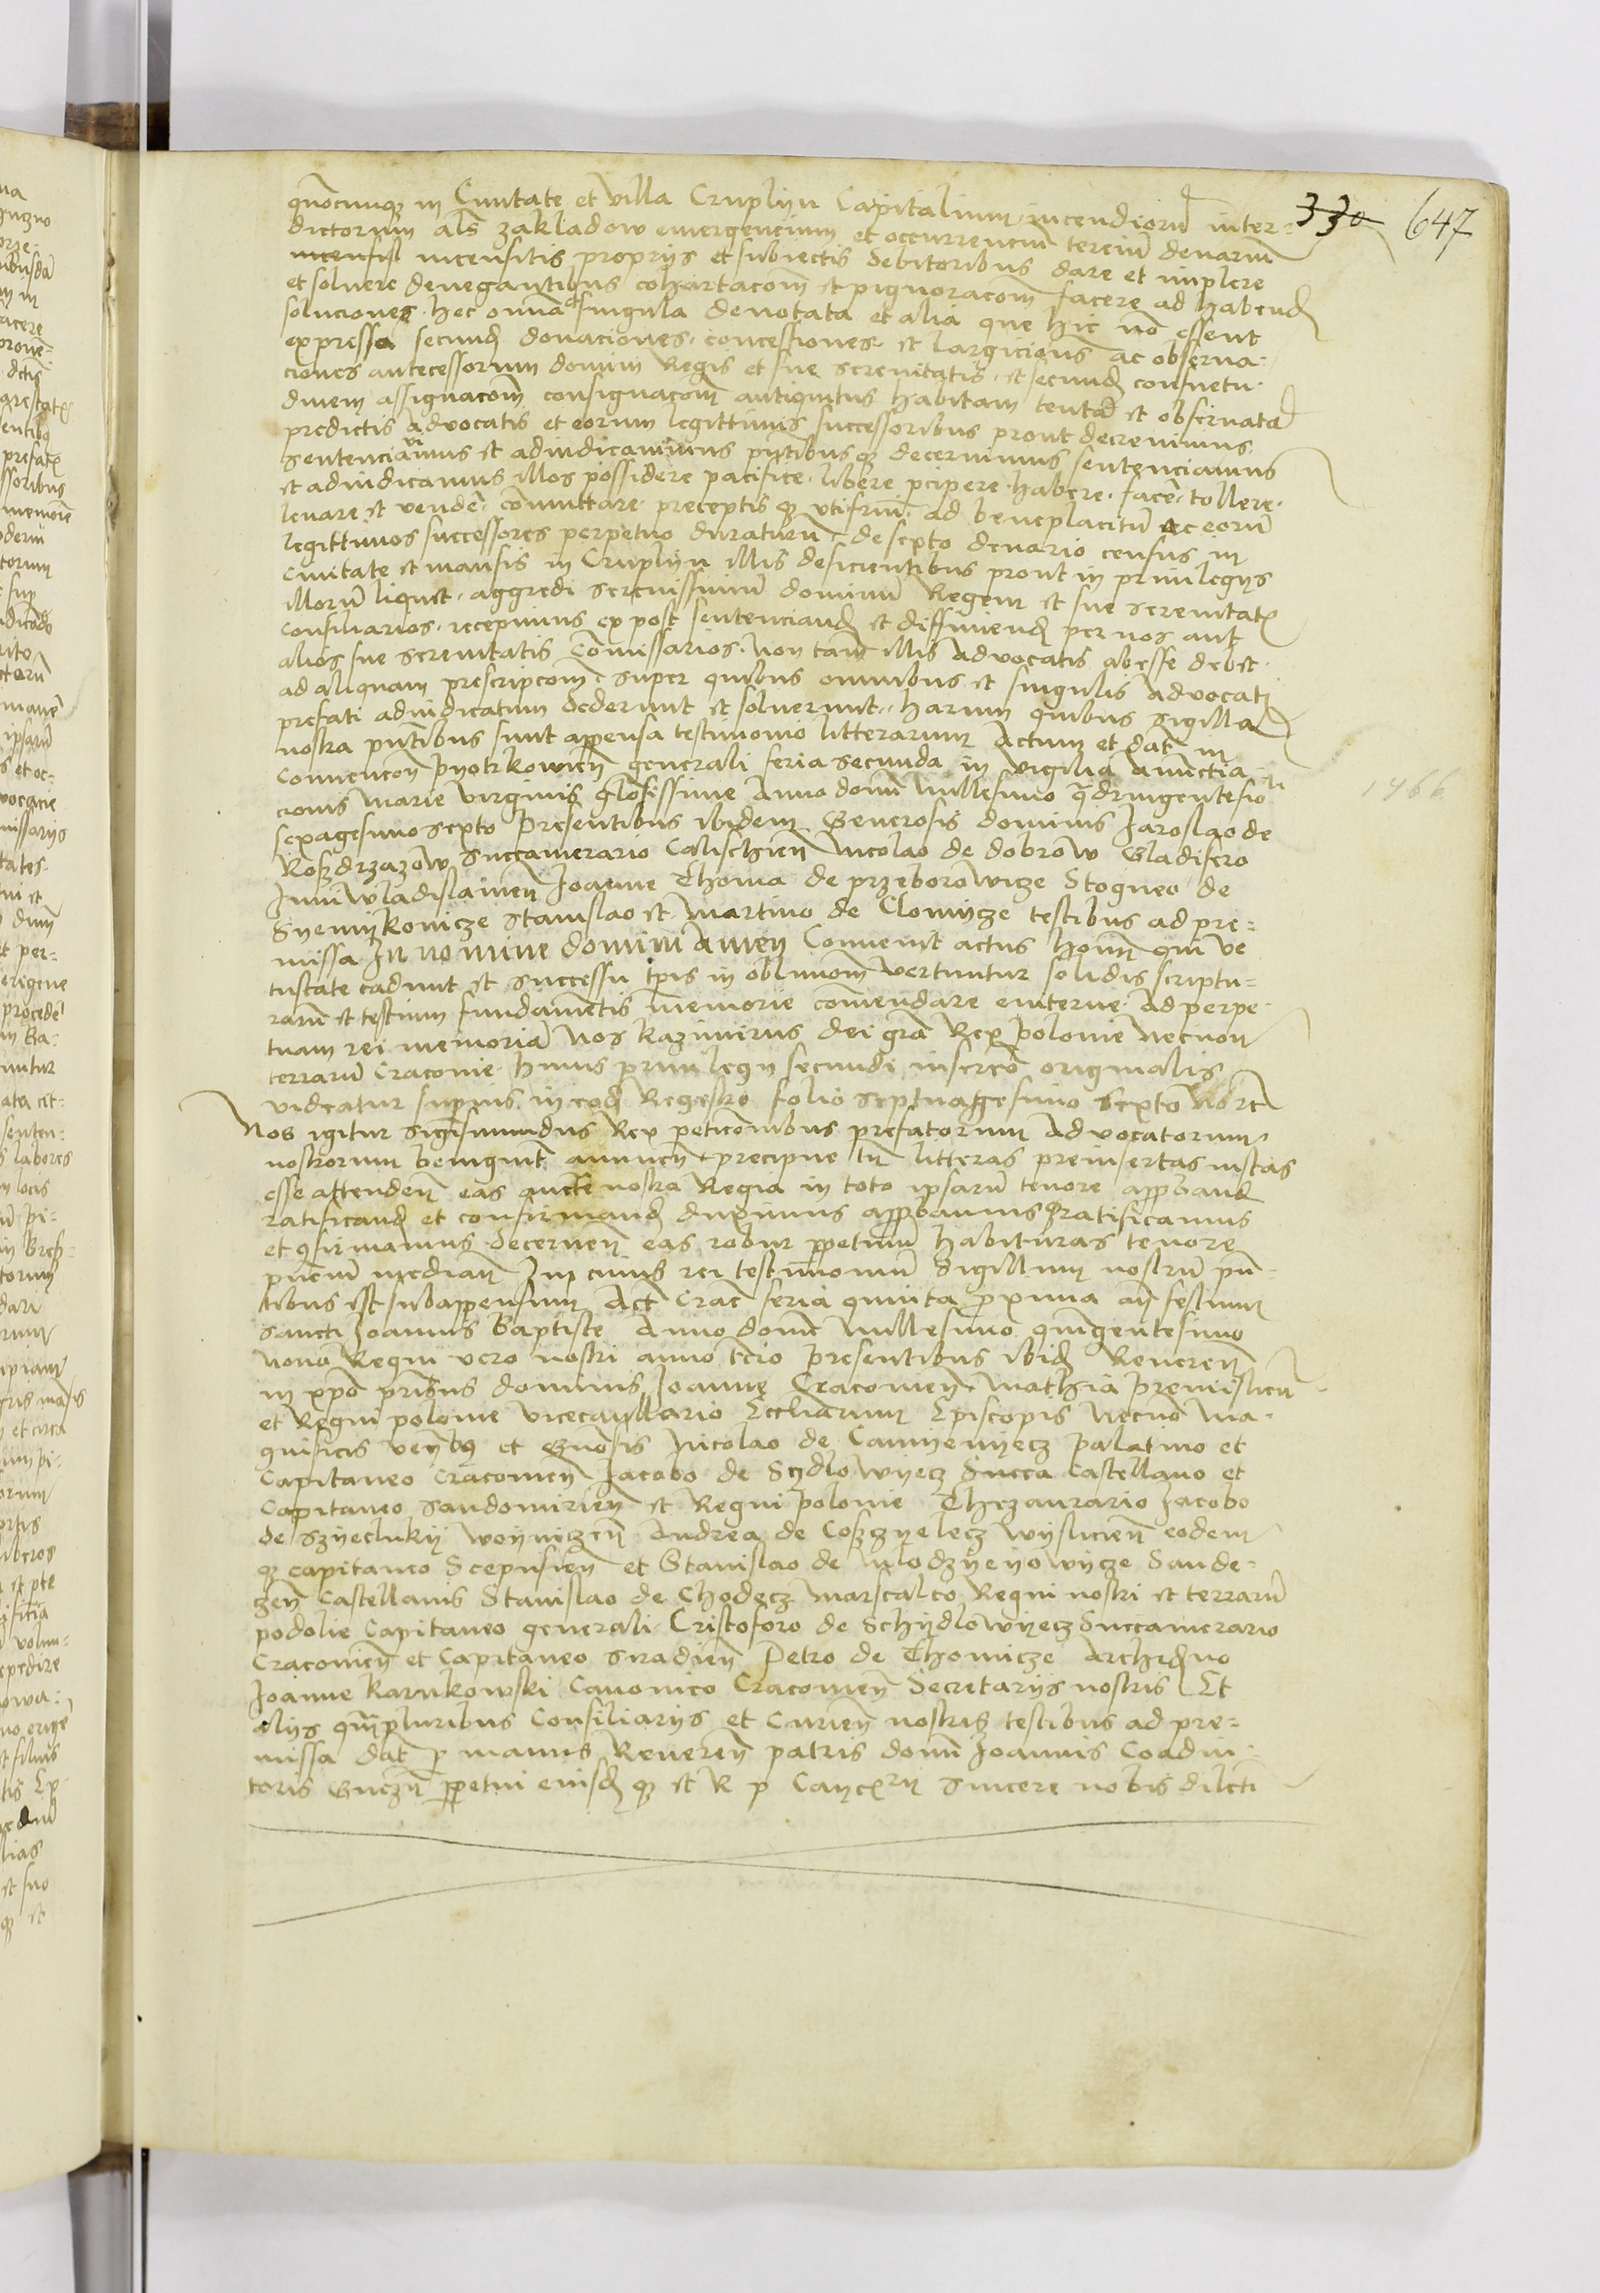 330 647
quocumque in Civitate et villa Cruplijn Capitalium incendiorum inter=
dictorum als zakladow emergencium et occurrencium tercium denarium
incensitis proprijs et subiectis debitoribus dare et implere
et solvere denegantibus cohartacom et pignoracom facere ad habend
soluciones. hec omnia et singula denotata et alia que hic non essent
expressa secund donaciones. concessiones. et largiciones ac observa-
ciones antecessorum domini Regis et sue serenitatis. et secund consuetu-
dinem assignacom consignacom antiquitus habitam tentam et observatam
predictis advocatis et eorum legittimis successoribus prout decrevimus
sentenciavimus et adiudicavimus pntibusq decernimus sentenciamus
et adiudicamus illos possidere pacifice. libere pcipere. habere. facere. tollere.
levare et vendere. comuttare. preceptis q utifrui. ad beneplacitum ac eorum
legittimos successores perpetuo duraturum. de sexto denario census in
Civitate et mansis in Cruplijn illis deficientibus prout in privilegijs
illorum liquet. aggredi serenissimum dominum Regem et sue serenitatis
Consiliarios. recepimus ex post sentenciand et diffiniend per nos aut
alios sue serenitatis Comissarios. non tam illis advocatis abesse debet.
ad aliquam prescripcom. super quibus omnibus et singulis advocati
prefati adiudicatum dederunt et solverunt. harum quibus sigilla
nostra pntibus sunt appensa testimonio litterarum Actum et dat in
Convencon pyotrkowien generali feria secunda in vigilia anunctia-
cionis Marie virginis gloriosissime Anno domini Millesimo quadringentesimo
1466
sexagesimo sexto Presentibus ibidem Generosis dominis Jaroslao de
Roszdrzazow Succamerario Calischien Nicolao de dobrow Gladifero
Juniwladislavien Joanne Thoma de przeborowicze Stogneo de
Syemijkovicze Stanislao et Martino de Clomijcze testibus ad pre=
missa In nomine domini Amen Convenit actus hominum qui ve
tustate cadunt et successu tpis in oblivionem vertuntur solidis scriptu=
rarum et testium fundamentis memorie comendare eviterne. Ad perpe-
tuam rei memoriam Nos kazimirus dei gra Rex polonie Necnon
terrarum Cracovie. huius privilegij secundi insercio originalis
videatur superius in eod Regestro folio septuagesimo sexto
Nos igitur Sigismundus Rex peticonibus prefatorum Advocatorum
nostrorum benignit annuen. precipue tn litteras preinsertas iustas
esse attenden eas aucte nostra Regia in toto ipsarum tenore approband
ratificand et confirmand duximus approbavimus ratificamus
et cfirmamus. decernen eas robur ppetuum habituras tenore
pncium median In cuius rei testimonium Sigillum nostrum pn-
tibus est subappensum Act Crac feria quinta proxima an festum
sancti Joannis Baptiste Anno domini Millesimo quingentesimo
Nono Regni vero nostri anno tcio Presentibus ibid Reveren
in xpo pribus dominis Joanne Cracovien. Mathia Premislien
et Regni polonie vicecancellario Eccliarum Episcopis Necno Ma-
gnificis venbq et Gnosis Nicolao de Camyenyecz palatino et
Capitaneo Cracovien Jacobo de Sydlowyecz Succa Castellano et
Capitaneo Sandomirien et Regni polonie Thezaurario Jacobo
de Szyeclukij Woyniczen Andrea de Coszczyelecz wyslicien eodem
q capitaneo Scepusien et Stanislao de Mlodzyeyowycze Sande-
czen Castellanis Stanislao de Chodecz Marscalco Regni nostri et terrarum
podolie Capitaneo generali. Cristoforo de Schydlowyecz Succamerario
Cracovien et Capitaneo Siradien Petro de Thomicze Archidno
Joanne Karnkowski Canonico Cracovien Secretarijs nostris Et
alijs quampluribus Consiliarijs et Curien nostris testibus ad pre=
missa dat p manus Reveren patris domini Joannis Coadiu-
toris Gnezn ppetui eiusd q et R p Cancrii Sincere nobis dilcti